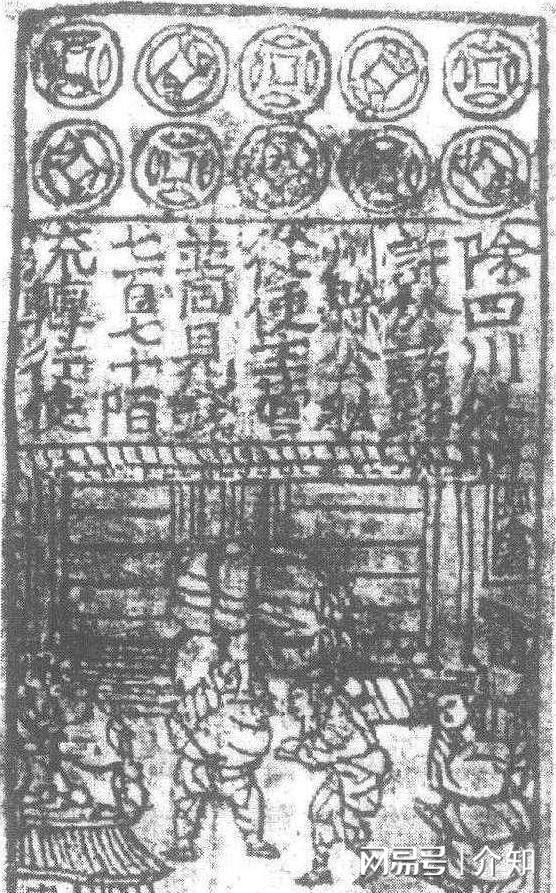 除四川外
許於諸路
州縣公私
從便主管
並同見錢
七百七十陌
流轉行使
网易号 | 介知